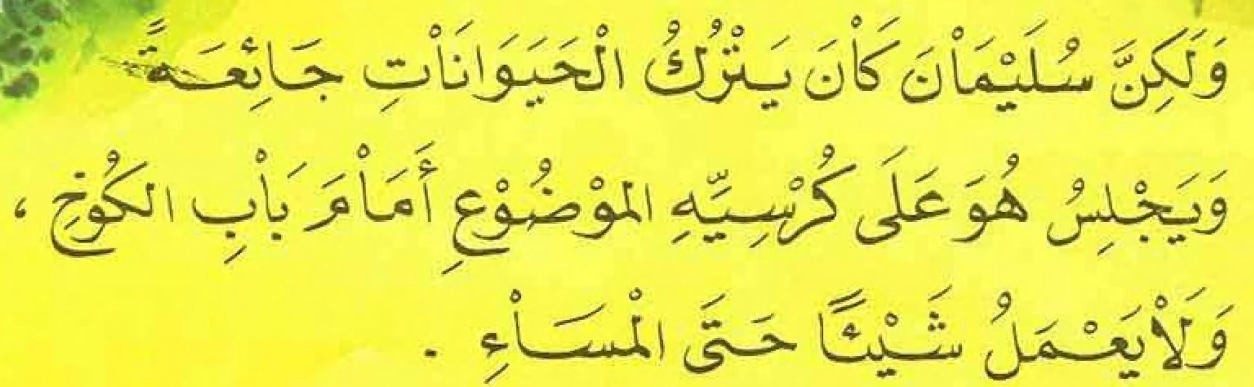 وَلَكِنَّ سُلَيْمَاْنَ كَاْنَ يَتْرُكُ الْحَيَوَانَاْتِ جَائِعَةً
وَيَجْلِسُ هُوَ عَلَى كُرْسِيِّهِ الموْضُوْعِ أَمَاْمَ بَاْبِ الكُوْخِ ،
وَلَاْ يَعْمَلُ شَيْئًا حَتَّى الْمَسَاْءِ .